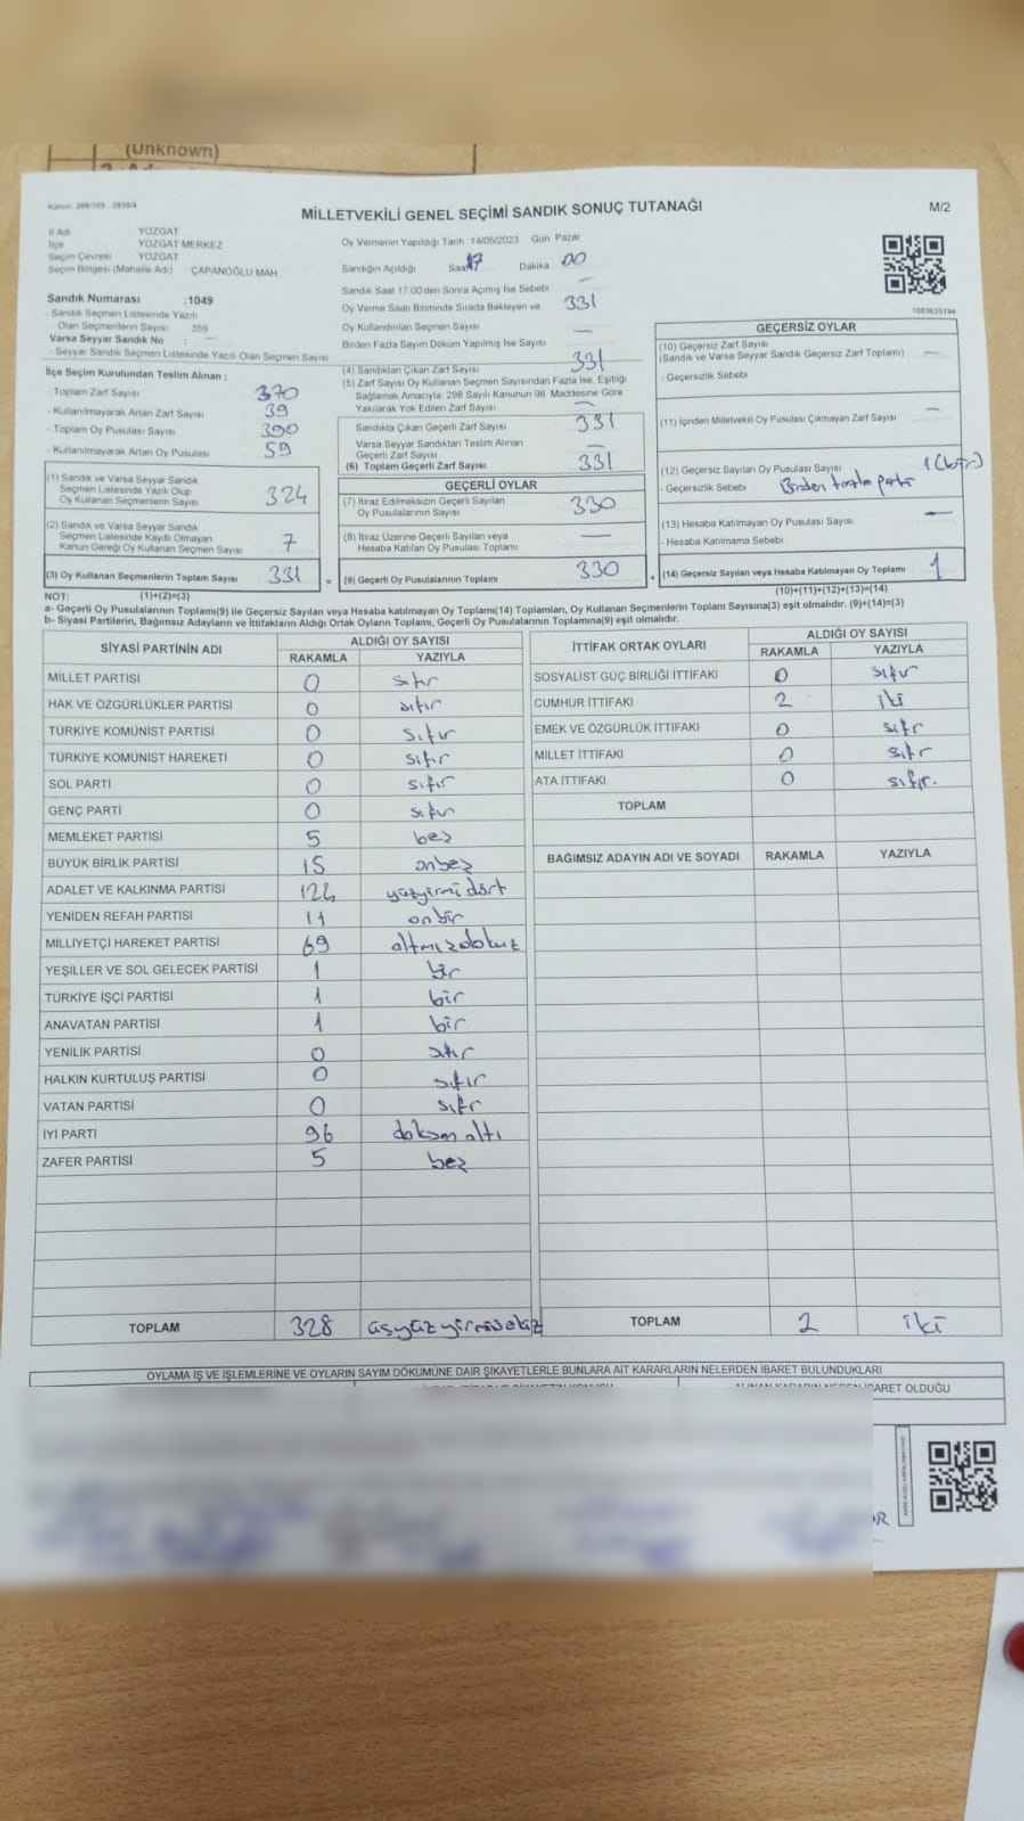 (Unknown)
MİLLETVEKİLİ GENEL SEÇİMİ SANDIK SONUÇ TUTANAĞI
M/2
İl Adı YOZGAT
İlçe YOZGAT MERKEZ
Seçim Çevresi YOZGAT
Seçim Bölgesi (Mahalle Adı) ÇAPANOĞLU MAH.
Sandık Numarası :1049
- Sandık Seçmen Listesinde Yazılı
Olan Seçmenlerin Sayısı 359
Varsa Seyyar Sandık No :
- Seyyar Sandık Seçmen Listesinde Yazılı Olan Seçmen Sayısı
Oy Vermenin Yapıldığı Tarih :14/05/2023 Gün Pazar
Sandığın Açıldığı Saat 17 Dakika 00
Sandık Saat 17:00'den Sonra Açılmış İse Sebebi —
Oy Verme Saati Bitiminde Sırada Bekleyen ve
Oy Kullandırılan Seçmen Sayısı 331
Birden Fazla Sayım Döküm Yapılmış İse Sayısı —
İlçe Seçim Kurulundan Teslim Alınan :
- Toplam Zarf Sayısı 370
- Kullanılmayarak Artan Zarf Sayısı 39
- Toplam Oy Pusulası Sayısı 390
- Kullanılmayarak Artan Oy Pusulası 59
(1) Sandık ve Varsa Seyyar Sandık
Seçmen Listesinde Yazılı Olup
Oy Kullanan Seçmenlerin Sayısı 324
(2) Sandık ve Varsa Seyyar Sandık
Seçmen Listesinde Kayıtlı Olmayan
Kanun Gereği Oy Kullanan Seçmen Sayısı 7
(3) Oy Kullanan Seçmenlerin Toplam Sayısı 331
(4) Sandıktan Çıkan Zarf Sayısı 331
(5) Zarf Sayısı Oy Kullanan Seçmen Sayısından Fazla İse, Eşitliği
Sağlamak Amacıyla; 298 Sayılı Kanunun 98. Maddesine Göre
Yakılarak Yok Edilen Zarf Sayısı —
Sandıkta Çıkan Geçerli Zarf Sayısı 331
Varsa Seyyar Sandıktan Teslim Alınan
Geçerli Zarf Sayısı —
(6) Toplam Geçerli Zarf Sayısı 331
GEÇERLİ OYLAR
(7) İtiraz Edilmeksizin Geçerli Sayılan
Oy Pusulalarının Sayısı 330
(8) İtiraz Üzerine Geçerli Sayılan veya
Hesaba Katılan Oy Pusulası Toplamı —
(9) Geçerli Oy Pusulalarının Toplamı 330
GEÇERSİZ OYLAR
(10) Geçersiz Zarf Sayısı
(Sandık ve Varsa Seyyar Sandık Geçersiz Zarf Toplamı) —
- Geçersizlik Sebebi
(11) İçinden Milletvekili Oy Pusulası Çıkmayan Zarf Sayısı —
(12) Geçersiz Sayılan Oy Pusulası Sayısı 1 (bir)
- Geçersizlik Sebebi Birden fazla parti
(13) Hesaba Katılmayan Oy Pusulası Sayısı —
- Hesaba Katılmama Sebebi
(14) Geçersiz Sayılan veya Hesaba Katılmayan Oy Toplamı 1
NOT: (1)+(2)=(3)
(10)+(11)+(12)+(13)=(14)
a- Geçerli Oy Pusulalarının Toplamı(9) ile Geçersiz Sayılan veya Hesaba katılmayan Oy Toplamı(14) Toplamları, Oy Kullanan Seçmenlerin Toplam Sayısına(3) eşit olmalıdır. (9)+(14)=(3)
b- Siyasi Partilerin, Bağımsız Adayların ve İttifakların Aldığı Ortak Oyların Toplamı, Geçerli Oy Pusulalarının Toplamına(9) eşit olmalıdır.
SİYASİ PARTİNİN ADI ALDIĞI OY SAYISI
RAKAMLA YAZIYLA
MİLLET PARTİSİ 0 sıfır
HAK VE ÖZGÜRLÜKLER PARTİSİ 0 sıfır
TÜRKİYE KOMÜNİST PARTİSİ 0 sıfır
TÜRKİYE KOMÜNİST HAREKETİ 0 sıfır
SOL PARTİ 0 sıfır
GENÇ PARTİ 0 sıfır
MEMLEKET PARTİSİ 5 beş
BÜYÜK BİRLİK PARTİSİ 15 onbeş
ADALET VE KALKINMA PARTİSİ 124 yüzyirmi dört
YENİDEN REFAH PARTİSİ 11 onbir
MİLLİYETÇİ HAREKET PARTİSİ 69 altmışdokuz
YEŞİLLER VE SOL GELECEK PARTİSİ 1 bir
TÜRKİYE İŞÇİ PARTİSİ 1 bir
ANAVATAN PARTİSİ 1 bir
YENİLİK PARTİSİ 0 sıfır
HALKIN KURTULUŞ PARTİSİ 0 sıfır
VATAN PARTİSİ 0 sıfır
İYİ PARTİ 96 doksan altı
ZAFER PARTİSİ 5 beş
TOPLAM 328 üçyüz yirmisekiz
İTTİFAK ORTAK OYLARI ALDIĞI OY SAYISI
RAKAMLA YAZIYLA
SOSYALİST GÜÇ BİRLİĞİ İTTİFAKI 0 sıfır
CUMHUR İTTİFAKI 2 iki
EMEK VE ÖZGÜRLÜK İTTİFAKI 0 sıfır
MİLLET İTTİFAKI 0 sıfır
ATA İTTİFAKI 0 sıfır.
TOPLAM
BAĞIMSIZ ADAYIN ADI VE SOYADI RAKAMLA YAZIYLA
TOPLAM 2 iki
OYLAMA İŞ VE İŞLEMLERİNE VE OYLARIN SAYIM DÖKÜMÜNE DAİR ŞİKAYETLERLE BUNLARA AİT KARARLARIN NELERDEN İBARET BULUNDUKLARI
İBARET OLDUĞU